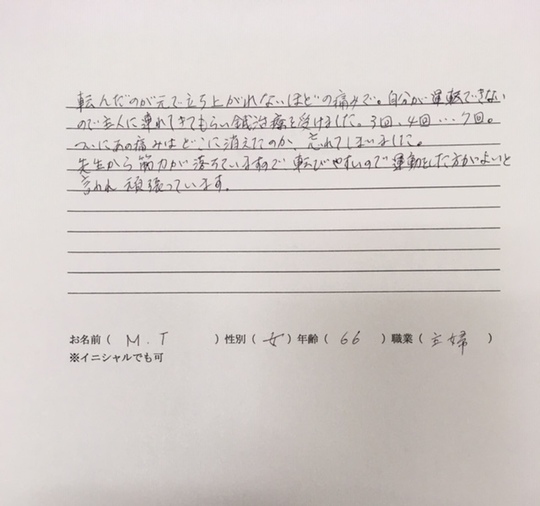 転んだのが元で立ち上がれないほどの痛みで。自分が運転できない
ので主人に連れてきてもらい鍼治療を受けました。3回、4回…7回。
ついにあの痛みはどこに消えたのか、忘れてしまいました。
先生から筋力が落ちていますので転びやすいので運動をした方がよいと
言われ頑張っています。
お名前（ M.T ）性別（ 女 ）年齢（ 66 ）職業（ 主婦 ）
※イニシャルでも可